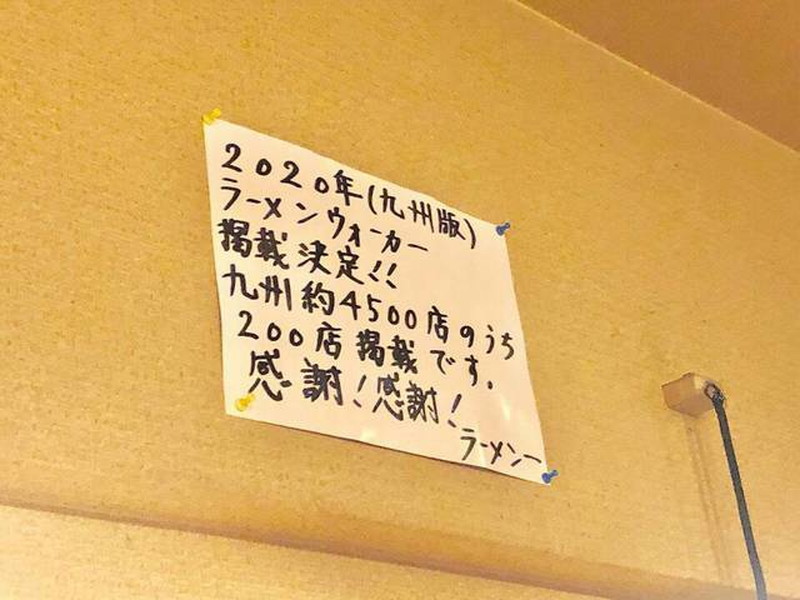 2020年(九州版)
ラーメンウォーカー
掲載決定!!
九州約4500店のうち
200店掲載です。
感謝!感謝!
ラーメン一